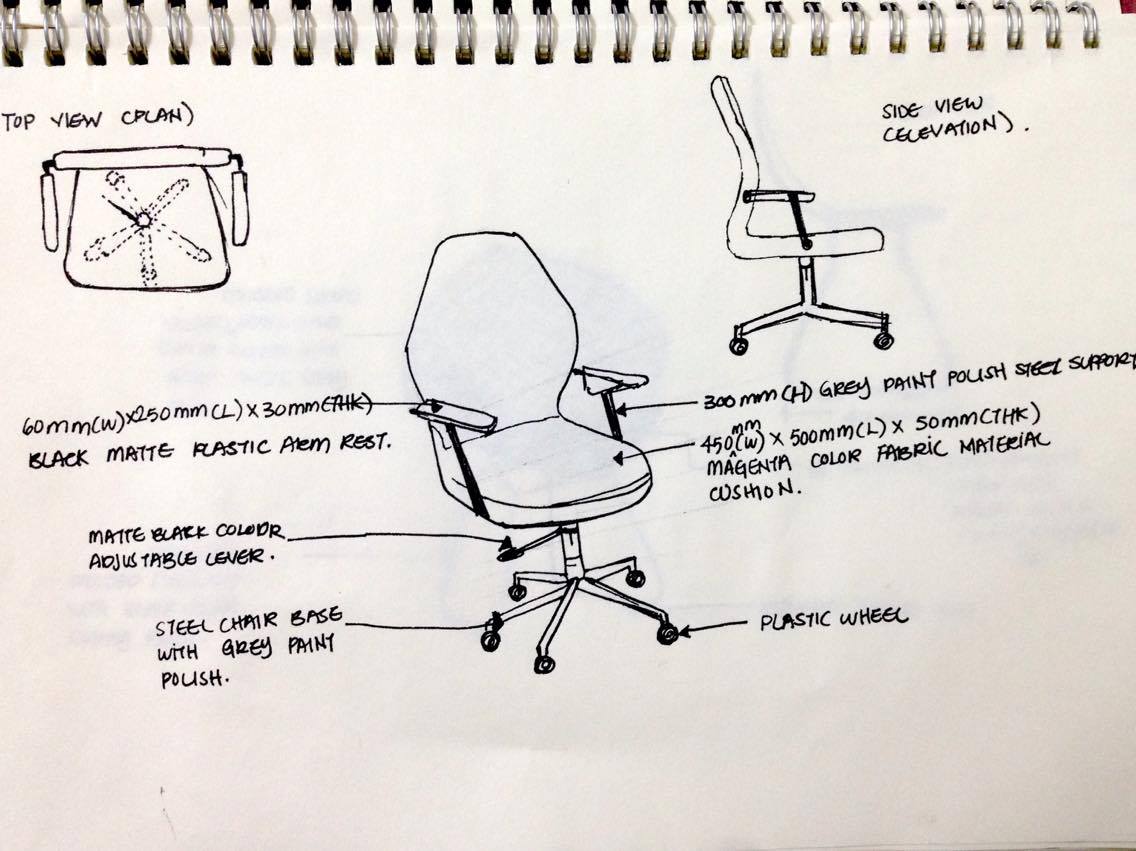 TOP VIEW (PLAN)
SIDE VIEW
(ELEVATION).
60mm(W)x250mm(L) x 30mm(THK)
BLACK MATTE PLASTIC ARM REST.
300mm(H) GREY PAINT POLISH STEEL SUPPORT
mm
450(W) x 500mm(L) x 50mm(THK)
MAGENTA COLOR FABRIC MATERIAL
CUSHION.
MATTE BLACK COLOUR
ADJUSTABLE LEVER.
STEEL CHAIR BASE
WITH GREY PAINT
POLISH.
PLASTIC WHEEL